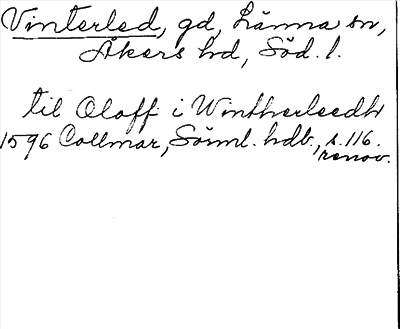 Vinterled, gd, Länna sn,
Åkers hd, Söd. l.
til Oloff i Wintherleedh
1596 Collmar, Söiml. hdb., s. 116.
renov.